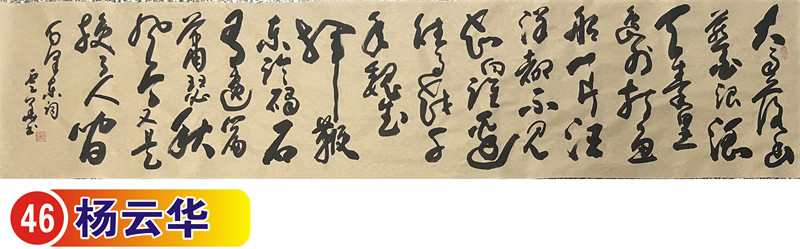 大雨落幽
燕白浪滔
天秦皇
岛外打鱼
船一片汪
洋都不见
知向谁边
往事越千
年魏武
挥鞭
东临碣石
有遗篇
萧瑟秋
风今又是
换了人间
毛泽东词
云华书
46 杨云华